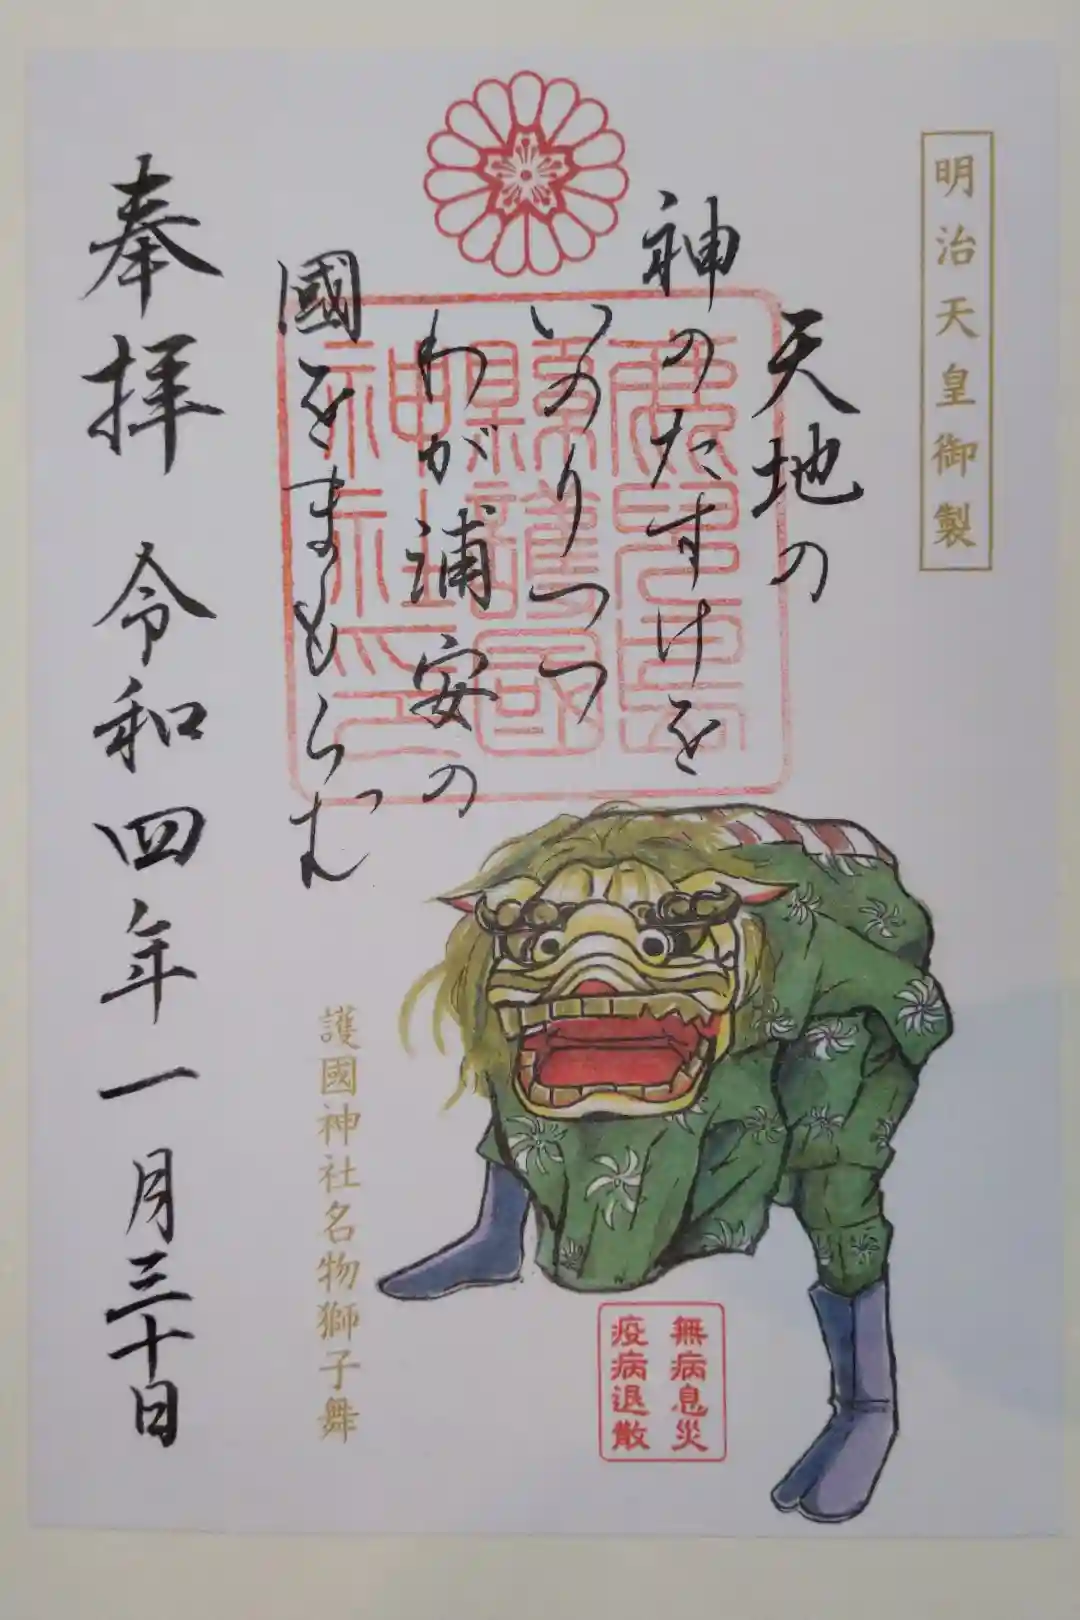 明治天皇御製
天地の
神のたすけを
いのりつつ
わが浦安の
國をまもらむ
鹿児島
縣護國
神社印
護國神社名物獅子舞
無病息災
疫病退散
奉拝 令和四年一月三十日